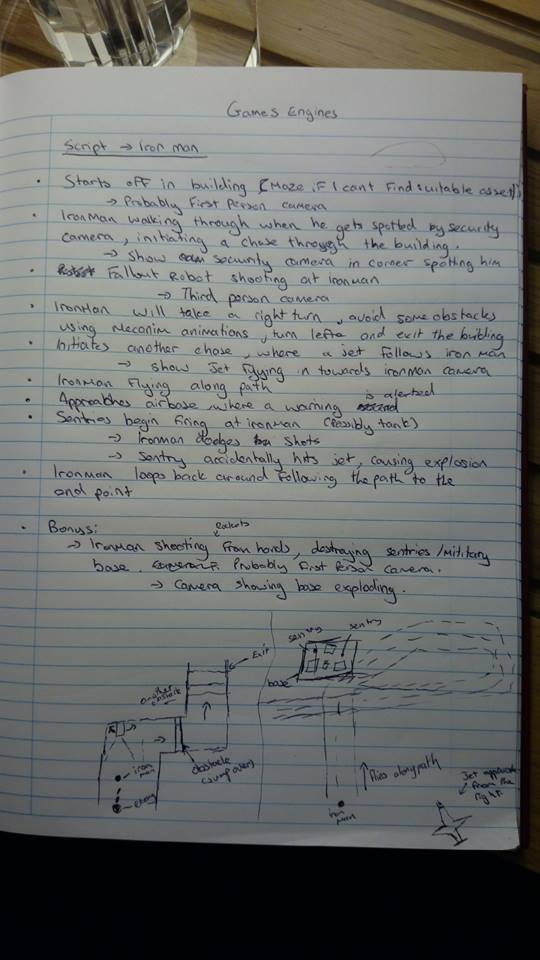 Games Engines
Script → Iron man
• Starts off in building (Maze if I cant find suitable asset)
→ Probably First Person camera
• Ironman walking through when he gets spotted by security
camera, initiating a chase through the building.
→ Show security camera in corner spotting him
• Fallout Robot shooting at ironman
→ Third person camera
• Ironman will take a right turn, avoid some obstacles
using Mecanim animations, turn left and exit the building
• Initiates another chase, where a jet follows iron man
→ show Jet flying in towards ironman camera
• Ironman Flying along path
• Approaches airbase where a warning is alerted
• Sentries begin firing at ironman (Possibly tank)
→ Ironman dodges shots
→ Sentry accidentally hits jet, causing explosion
• Ironman loops back around following the path to the
end point
• Bonus:
→ Ironman shooting rockets from hands, destroying sentries/Military
base. Probably First Person Camera.
→ Camera showing base exploding.
sentry
sentry
Exit
base
another obstacle
obstacle (jump over)
iron man
enemy
flies along path
iron man
Jet approaches from the right.